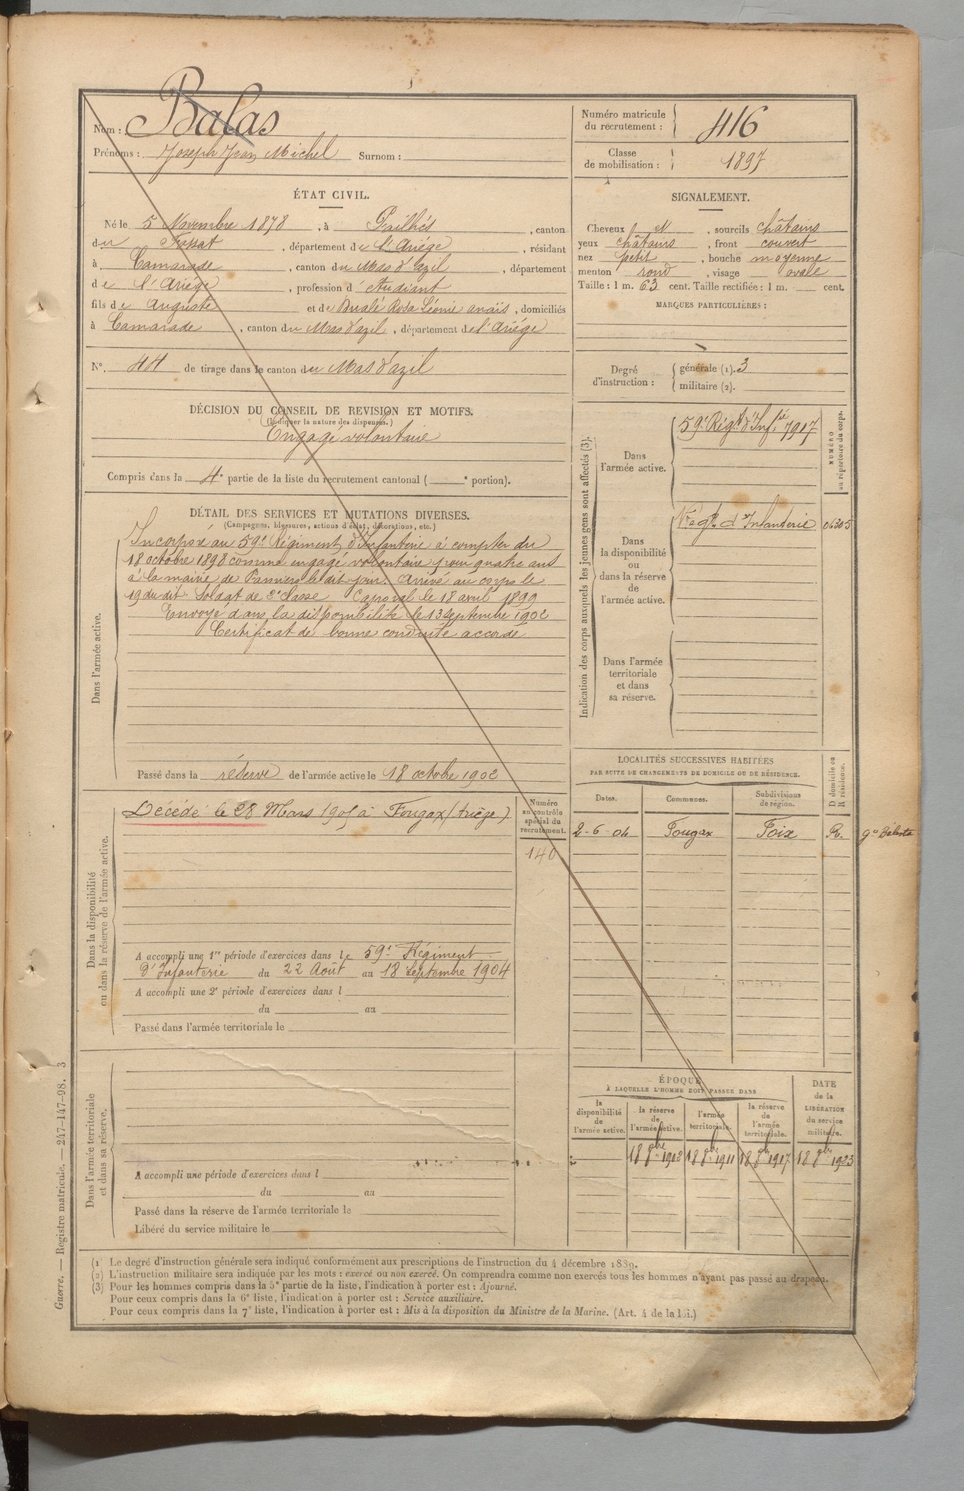 Nom : Balas
Prénoms : Joseph Jean Michel Surnom :
Numéro matricule du recrutement : 416
Classe de mobilisation : 1897
ÉTAT CIVIL.
Né le 5 Novembre 1878, à Pailhés, canton
du Fossat, département de l'Ariège, résidant
à Camarade, canton du Mas d'azil, département
de l'Ariège, profession d'étudiant
fils de Auguste et de Rosa Léonie anaïs, domiciliés
à Camarade, canton du Mas d'azil, département de l'Ariège
N°. 44 de tirage dans le canton du Mas d'azil
SIGNALEMENT.
Cheveux N, sourcils châtains
yeux châtains, front couvert
nez petit, bouche moyenne
menton rond, visage ovale
Taille : 1 m. 63 cent. Taille rectifiée : 1 m. cent.
MARQUES PARTICULIÈRES :
Degré d'instruction :
générale (1). 3
militaire (2).
DÉCISION DU CONSEIL DE REVISION ET MOTIFS.
(Indiquer la nature des dispenses.)
Engagé volontaire
Compris dans la 4e partie de la liste du recrutement cantonal ( e portion).
DÉTAIL DES SERVICES ET MUTATIONS DIVERSES.
(Campagnes, blessures, actions d'éclat, décorations, etc.)
Dans l'armée active.
Incorporé au 59e Régiment d'Infanterie à compter du
18 octobre 1898 comme engagé volontaire pour quatre ans
à la mairie de Pamiers le dit jour. Arrivé au corps le
19 du dit Soldat de 2e classe Caporal le 18 avril 1899
Envoyé dans la disponibilité le 13 septembre 1902
Certificat de bonne conduite accordé
Passé dans la réserve de l'armée active le 18 octobre 1902
Indication des corps auxquels les jeunes gens sont affectés (3).
NUMÉRO au répertoire du corps.
Dans l'armée active.
59e Régt d'Infie 7917
Dans la disponibilité ou dans la réserve de l'armée active.
d'Infanterie 04305
Dans l'armée territoriale et dans sa réserve.
Dans la disponibilité ou dans la réserve de l'armée active.
Décédé le 28 Mars 1905 à Fougax (Ariège)
Numéro au contrôle spécial du recrutement.
140
A accompli une 1re période d'exercices dans le 59e Régiment
d'Infanterie du 22 Août au 18 Septembre 1904
A accompli une 2e période d'exercices dans l
du au
Passé dans l'armée territoriale le
LOCALITÉS SUCCESSIVES HABITÉES
PAR SUITE DE CHANGEMENTS DE DOMICILE OU DE RÉSIDENCE.
Dates. Communes. Subdivisions de région. D domicile ou R résidence.
2-6-04 Fougax Foix R.
Dans l'armée territoriale et dans sa réserve.
A accompli une période d'exercices dans l
du au
Passé dans la réserve de l'armée territoriale le
Libéré du service militaire le
ÉPOQUE
À LAQUELLE L'HOMME DOIT PASSER DANS
la disponibilité de l'armée active.
la réserve de l'armée active.
l'armée territoriale.
la réserve de l'armée territoriale.
DATE de la LIBÉRATION du service militaire.
18 8bre 1902 18 8bre 1911 18 8bre 1917 18 8bre 1923
(1) Le degré d'instruction générale sera indiqué conformément aux prescriptions de l'instruction du 4 décembre 1889.
(2) L'instruction militaire sera indiquée par les mots : exercé ou non exercé. On comprendra comme non exercés tous les hommes n'ayant pas passé au drapeau.
(3) Pour les hommes compris dans la 5e partie de la liste, l'indication à porter est : Ajourné.
Pour ceux compris dans la 6e liste, l'indication à porter est : Service auxiliaire.
Pour ceux compris dans la 7e liste, l'indication à porter est : Mis à la disposition du Ministre de la Marine. (Art. 4 de la loi.)
Guerre. — Registre matricule. — 247-147-98. 3